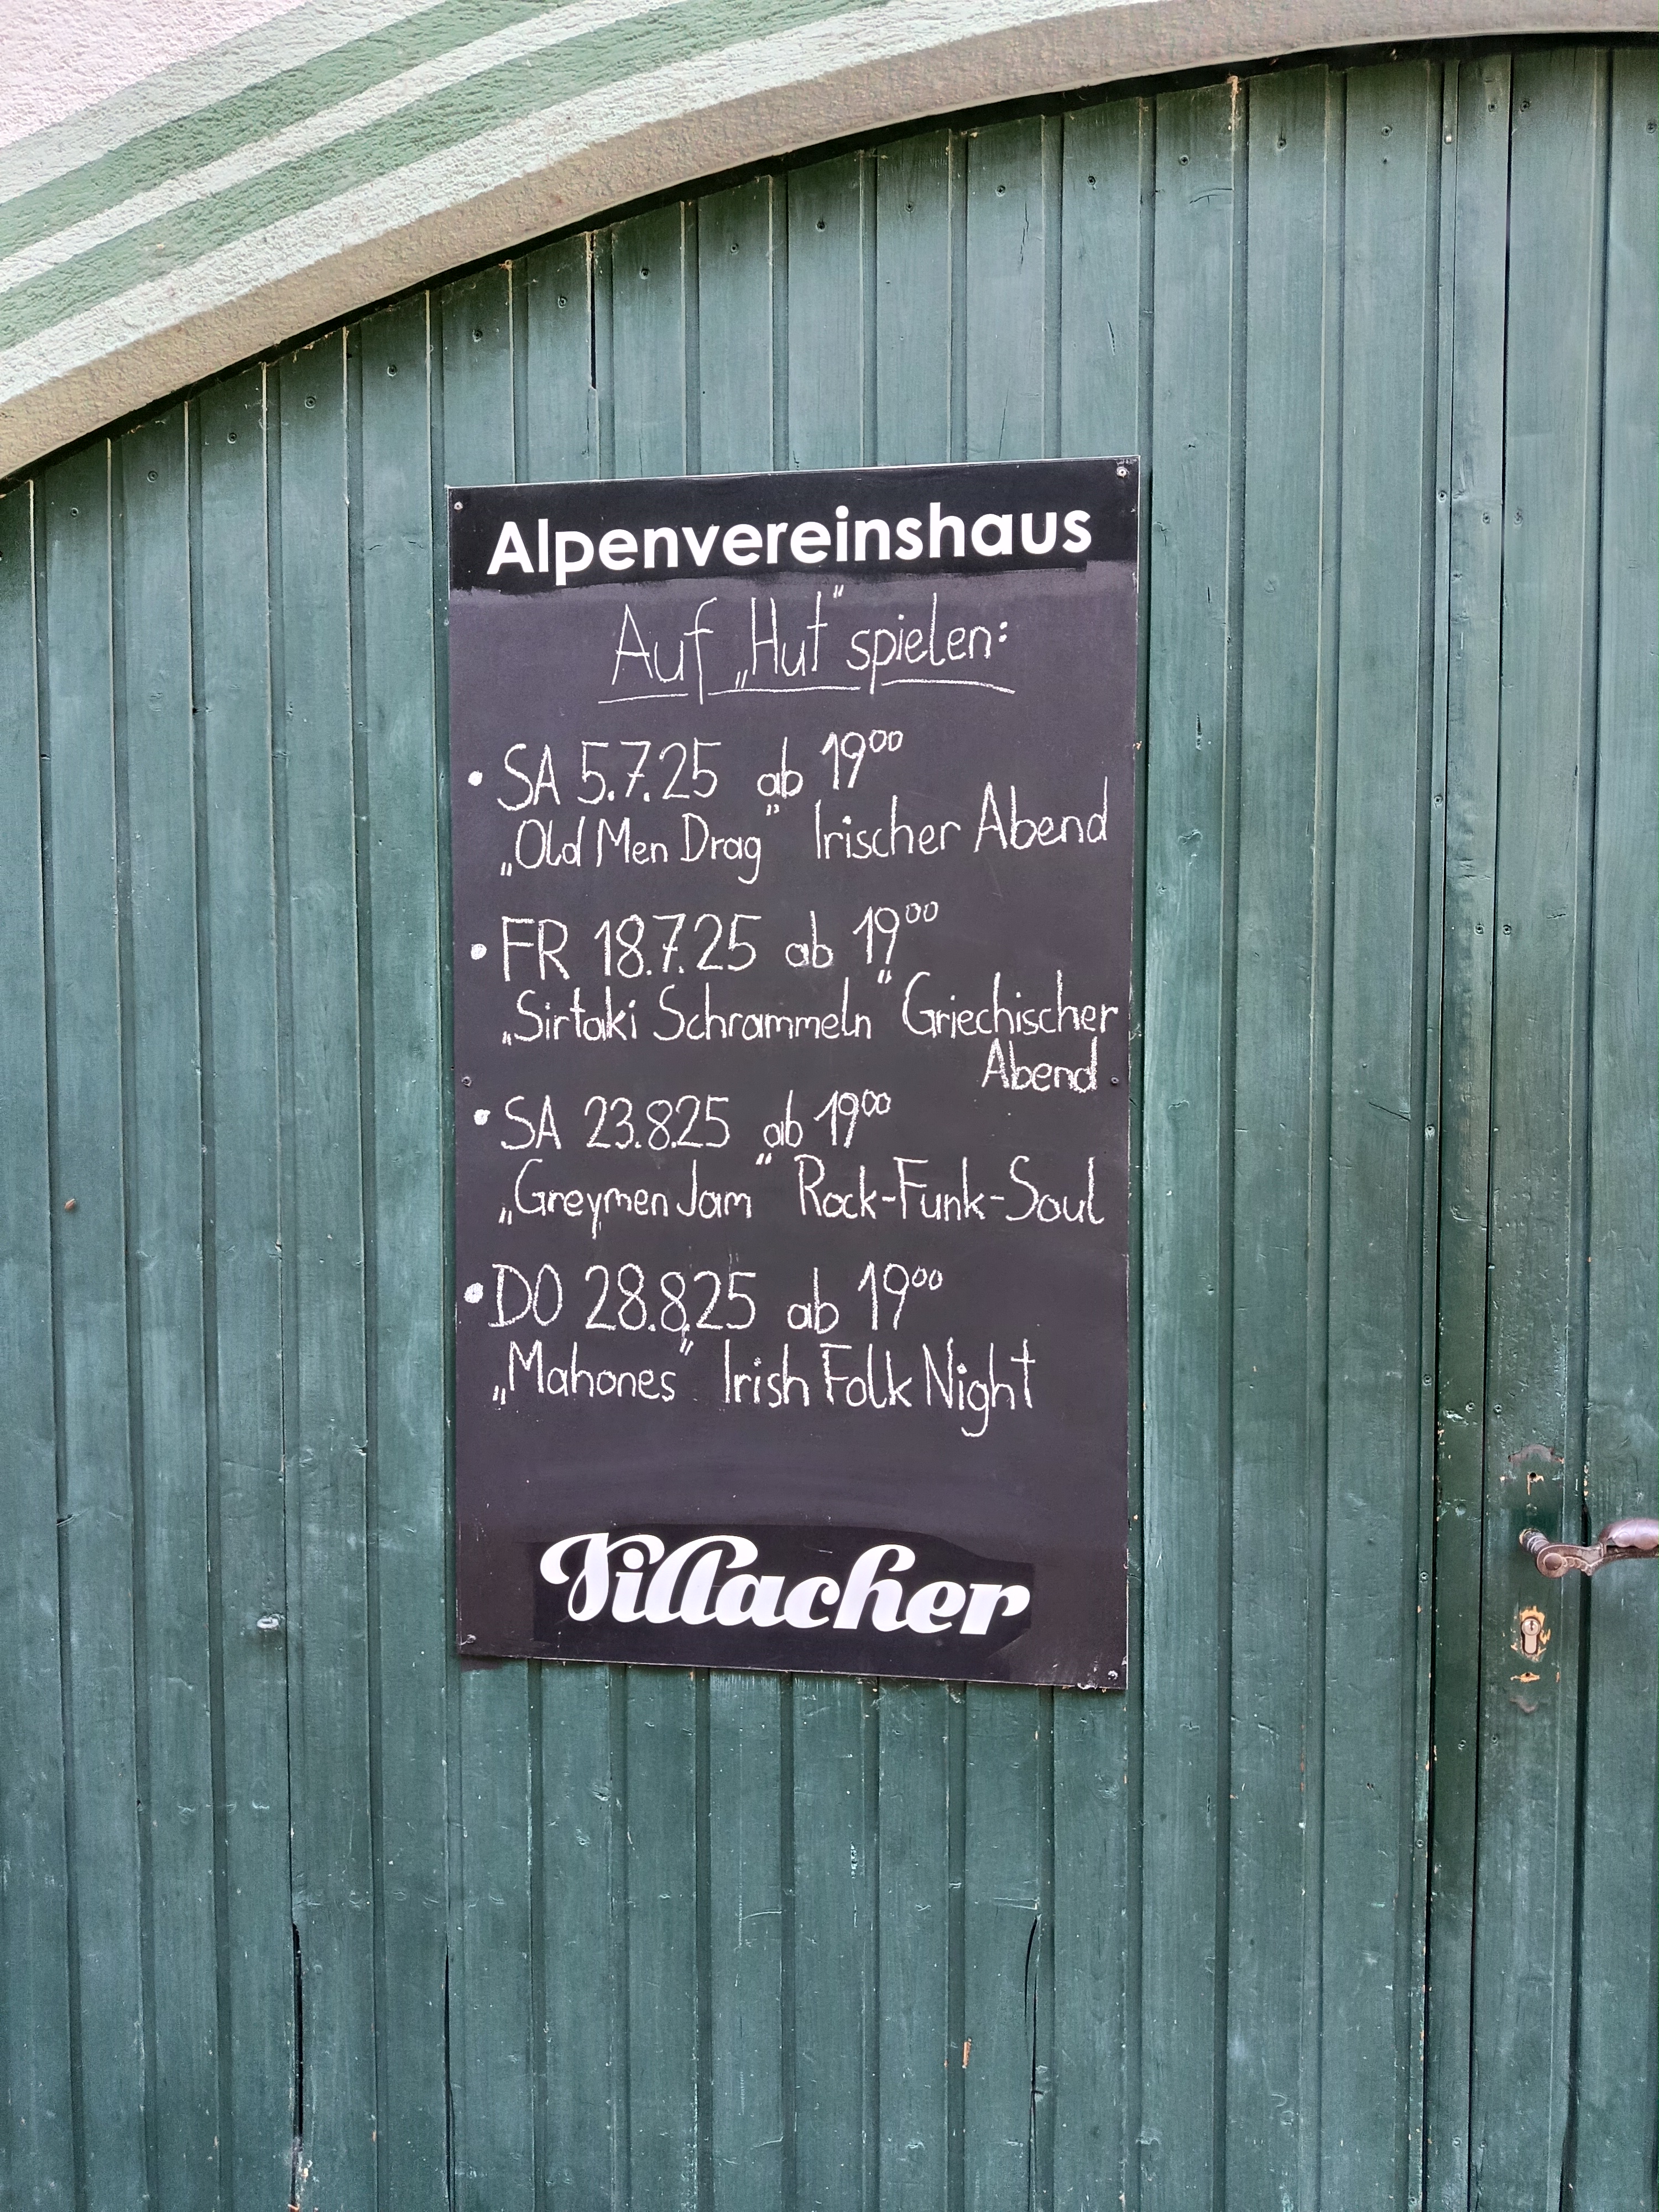 Alpenvereinshaus
Auf „Hut" spielen:
• SA 5.7.25 ab 19⁰⁰
„Old Men Drag" Irischer Abend
• FR 18.7.25 ab 19⁰⁰
„Sirtaki Schrammeln" Griechischer
Abend
• SA 23.8.25 ab 19⁰⁰
„Greymen Jam" Rock-Funk-Soul
• DO 28.8.25 ab 19⁰⁰
„Mahones" Irish Folk Night
Villacher